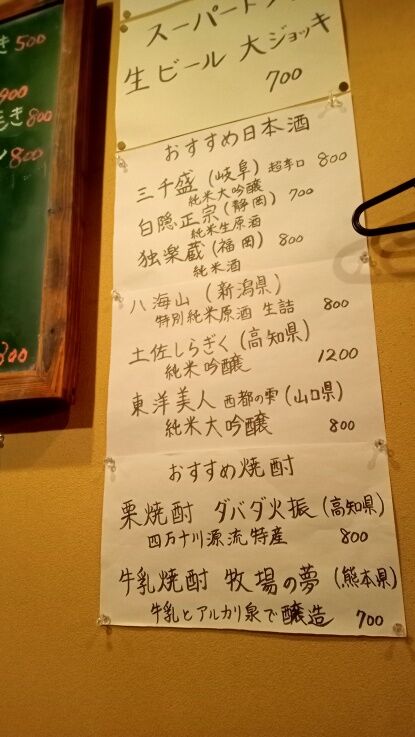 き 500
900
き 800
800
800
スーパードラ
生ビール 大ジョッキ
700
おすすめ日本酒
三千盛(岐阜)超辛口 800
純米大吟醸
白隠正宗(静岡) 700
純米生原酒
独楽蔵(福岡) 800
純米酒
八海山(新潟県)
特別純米原酒 生詰 800
土佐しらぎく(高知県)
純米吟醸 1200
東洋美人 西都の雫(山口県)
純米大吟醸 800
おすすめ焼酎
栗焼酎 ダバダ火振(高知県)
四万十川源流特産 800
牛乳焼酎 牧場の夢(熊本県)
牛乳とアルカリ泉で醸造 700